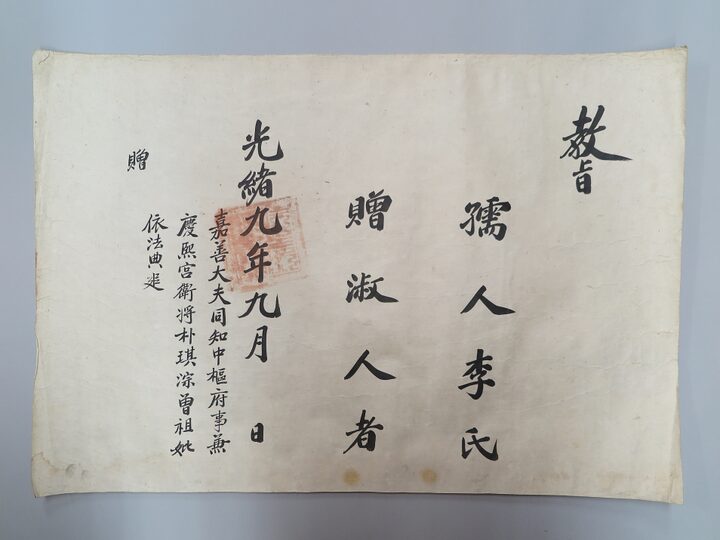 敎旨
孺人李氏
贈淑人者
光緖九年九月 日
嘉善大夫同知中樞府事兼
慶熙宮衛將朴琪淙曾祖妣
贈
依法典追